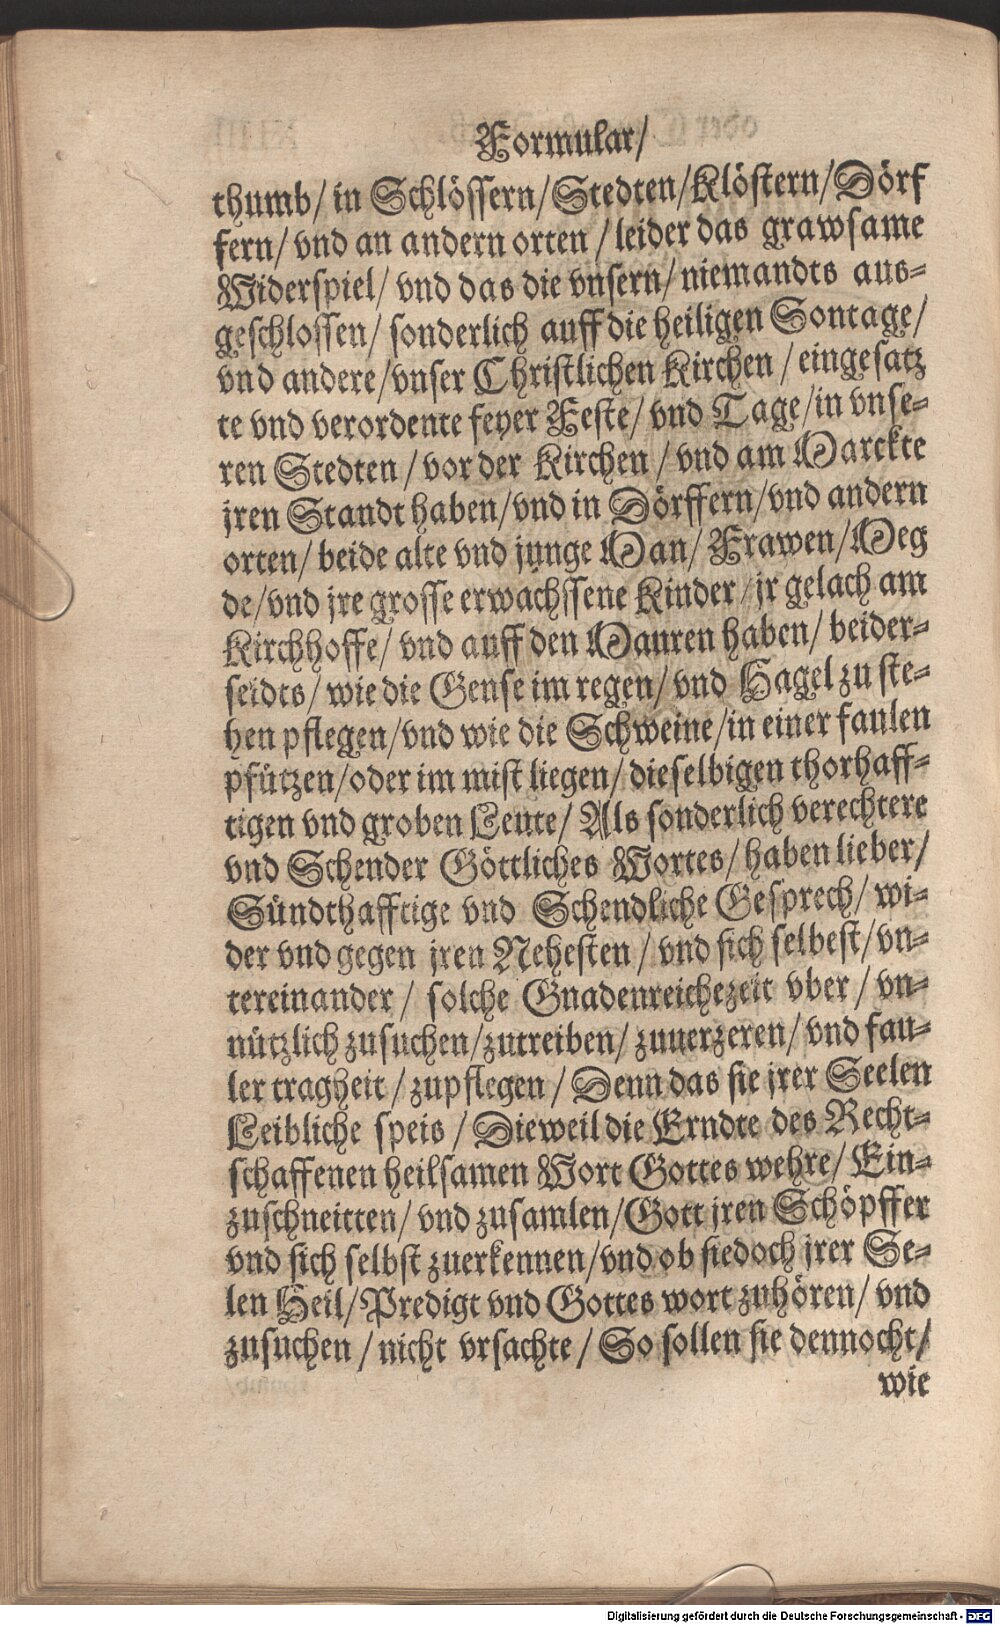 Formular/
thumb/ in Schlössern/Stedten/Klöstern/Dörf
fern/ vnd an andern orten / leider das grawsame
Widerspiel/ vnd das die vnsern/ niemandts aus-
geschlossen/ sonderlich auff die heiligen Sontage/
vnd andere/vnser Christlichen Kirchen / eingesatz
te vnd verordente feyer Feste/ vnd Tage/in vnse-
ren Stedten / vor der Kirchen / vnd am Marckte
jren Standt haben/vnd in Dörffern/vnd andern
orten/ beide alte vnd junge Man/ Frawen/Meg
de/vnd jre grosse erwachssene Kinder/ jr gelach am
Kirchhoffe/ vnd auff den Mauren haben/ beider-
seidts/ wie die Gense im regen/ vnd Hagel zu ste-
hen pflegen/vnd wie die Schweine/in einer faulen
pfützen/oder im mist liegen/ dieselbigen thorhaff-
tigen vnd groben Leute/ Als sonderlich verechtere
vnd Schender Göttliches Wortes/ haben lieber/
Sündthafftige vnd Schendliche Gesprech/ wi-
der vnd gegen jren Nehesten / vnd sich selbest/vn-
tereinander / solche Gnadenreichezeit vber / vn-
nützlich zusuchen/zutreiben/ zuuerzeren/ vnd fau-
ler tragheit / zupflegen / Denn das sie jrer Seelen
Leibliche speis / Dieweil die Erndte des Recht-
schaffenen heilsamen Wort Gottes wehre/ Ein-
zuschneitten/ vnd zusamlen/Gott jren Schöpffer
vnd sich selbst zuerkennen/vnd ob sie doch jrer Se-
len Heil/Predigt vnd Gottes wort zuhören/ vnd
zusuchen / nicht vrsachte / So sollen sie dennocht/
wie
Digitalisierung gefördert durch die Deutsche Forschungsgemeinschaft - DFG